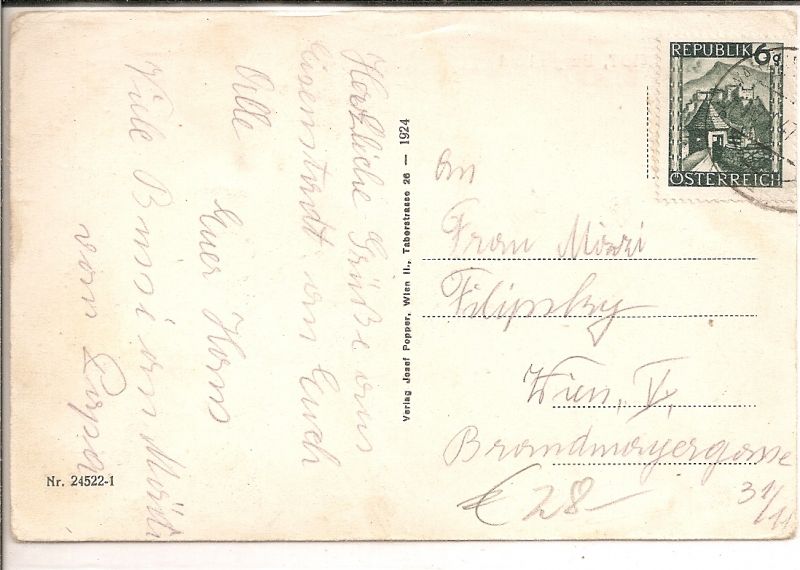 Herzliche Grüße aus
Eisenstadt an Euch
Alle
Euer Hans
Viele Bussi an Mutti
vom Papa
Verlag Josef Popper, Wien II., Taborstrasse 26 — 1924
Nr. 24522-1
REPUBLIK 6g
ÖSTERREICH
An
Frau Mizzi
Filipsky
Wien, V,
Brandmayergasse
31/11
€ 28-